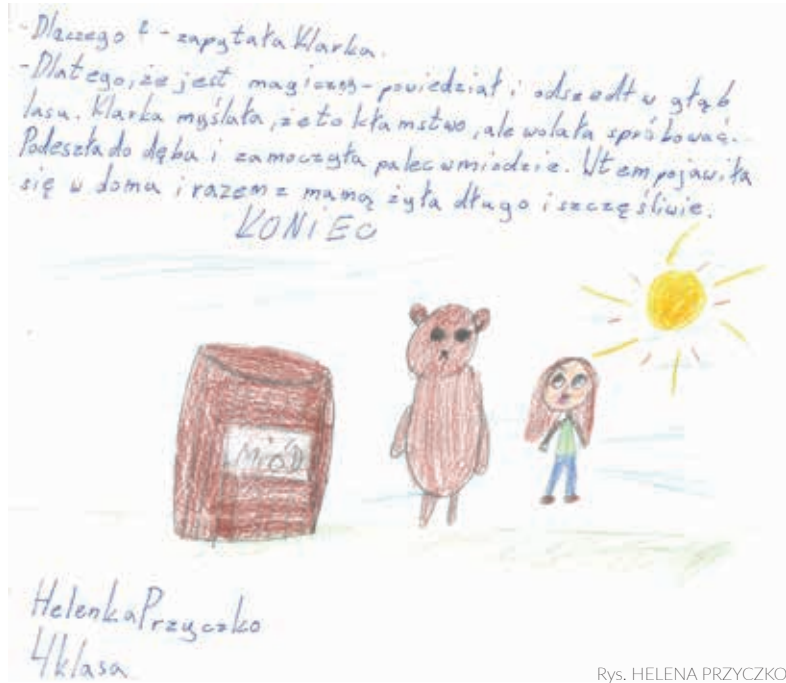 -Dlaczego? - zapytała Klarka.
-Dlatego, że jest magiczny - powiedział i odszedł w głąb
lasu. Klarka myślała, że to kłamstwo, ale wolała spróbować.
Podeszła do dęba i zamoczyła palec w miodzie. Wtem pojawiła
się w domu i razem z mamą żyła długo i szczęśliwie.
KONIEC
MIÓD
Helenka Przyczko
4 klasa
Rys. HELENA PRZYCZKO